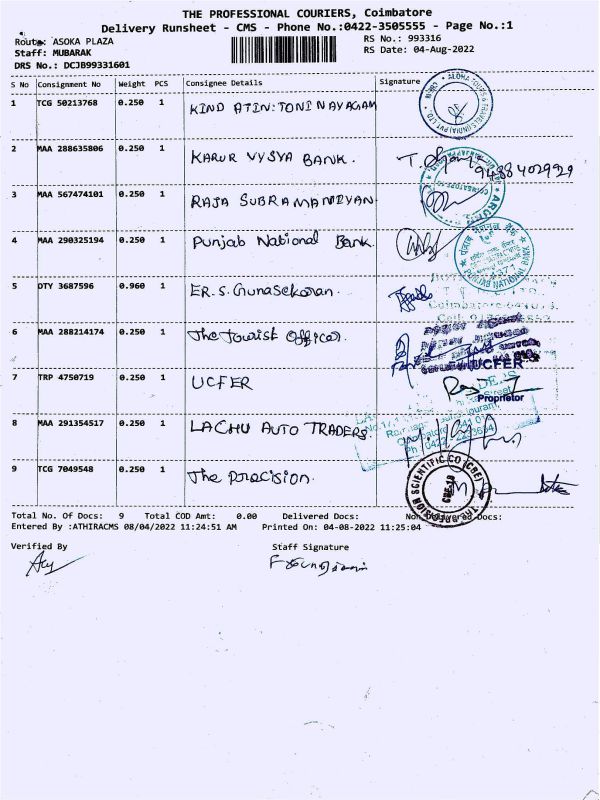 THE PROFESSIONAL COURIERS, Coimbatore
Delivery Runsheet - CMS - Phone No.:0422-3505555 - Page No.:1
Route: ASOKA PLAZA
RS No.: 993316
Staff: MUBARAK
RS Date: 04-Aug-2022
DRS No.: DCJB99331601
S No Consignment No Weight PCS Consignee Details Signature
1 TCG 50213768 0.250 1 KIND ATTN: TONI NAYAGAM
2 MAA 288635806 0.250 1 KARUR VYSYA BANK. 9488402929
3 MAA 567474101 0.250 1 RAJA SUBRAMANIYAN
4 MAA 290325194 0.250 1 Punjab National Bank.
5 DTY 3687596 0.960 1 ER. S. Gunasekaran.
6 MAA 288214174 0.250 1 The Tourist Officer.
7 TRP 4750719 0.250 1 UCFER
UCFER
Proprietor
8 MAA 291354517 0.250 1 LACHU AUTO TRADERS.
9 TCG 7049548 0.250 1 The precision.
Total No. Of Docs: 9 Total COD Amt: 0.00 Delivered Docs: Docs:
Entered By :ATHIRACMS 08/04/2022 11:24:51 AM Printed On: 04-08-2022 11:25:04
Verified By Staff Signature